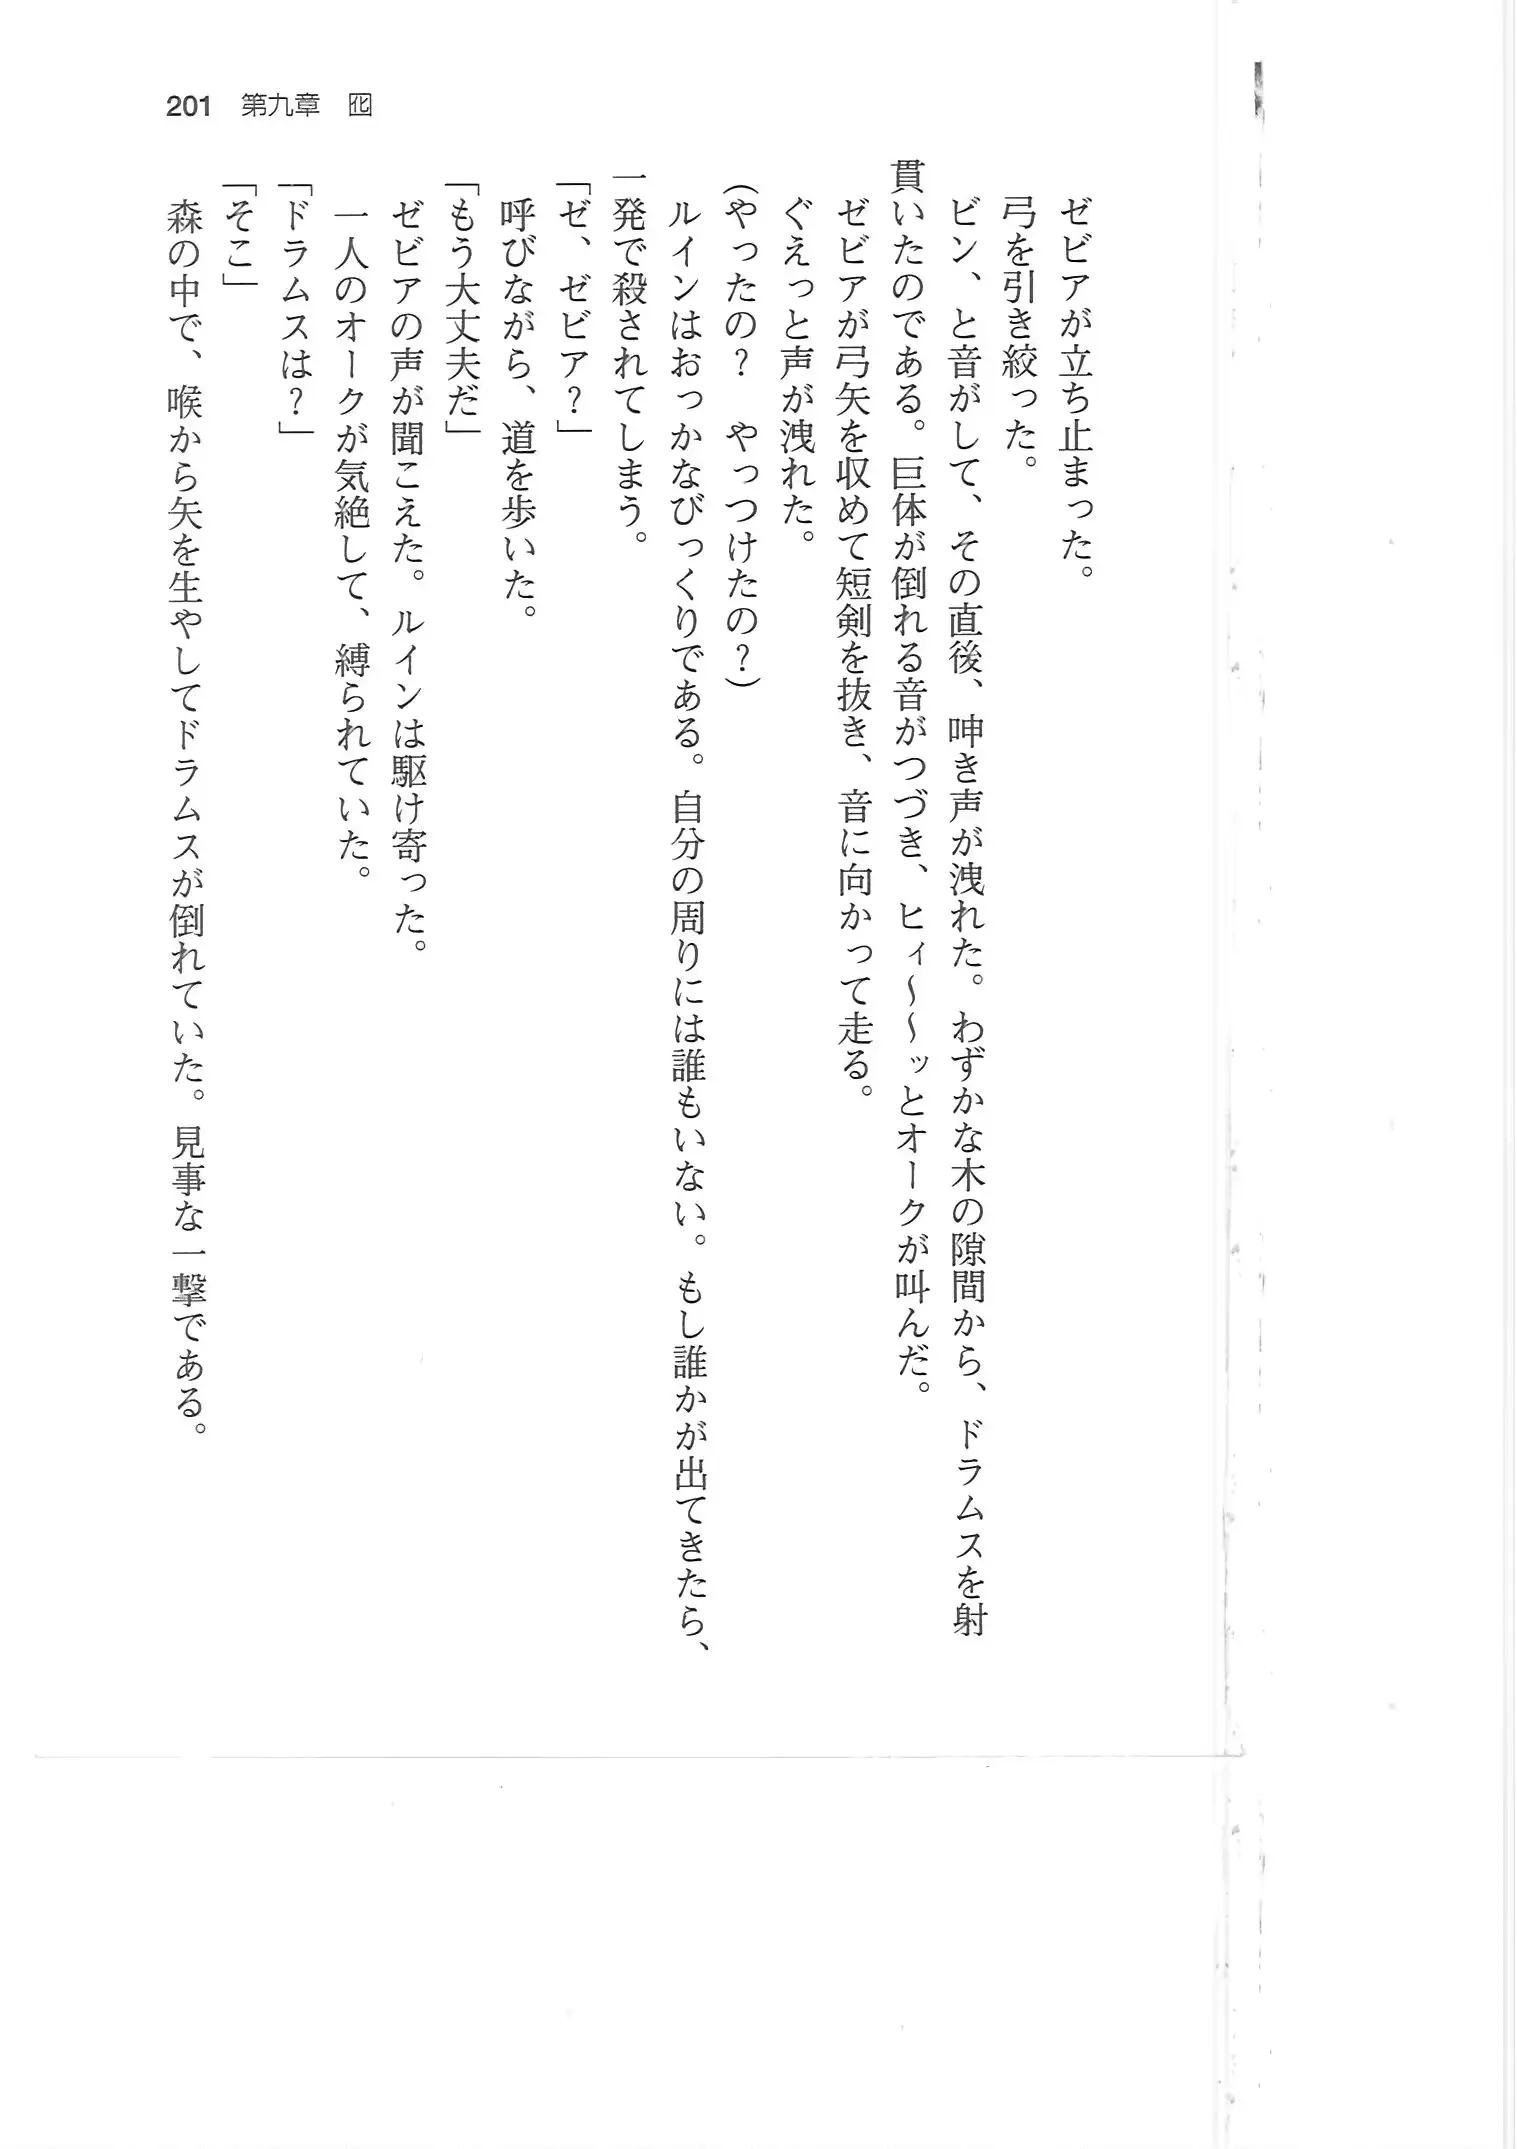 201 第九章 囮
ゼビアが立ち止まった。
弓を引き絞った。
ビン、と音がして、その直後、呻き声が洩れた。わずかな木の隙間から、ドラムスを射
貫いたのである。巨体が倒れる音がつづき、ヒィ〜〜ッとオークが叫んだ。
ゼビアが弓矢を収めて短剣を抜き、音に向かって走る。
ぐえっと声が洩れた。
(やったの? やっつけたの?)
ルインはおっかなびっくりである。自分の周りには誰もいない。もし誰かが出てきたら、
一発で殺されてしまう。
「ゼ、ゼビア?」
呼びながら、道を歩いた。
「もう大丈夫だ」
ゼビアの声が聞こえた。ルインは駆け寄った。
一人のオークが気絶して、縛られていた。
「ドラムスは?」
「そこ」
森の中で、喉から矢を生やしてドラムスが倒れていた。見事な一撃である。